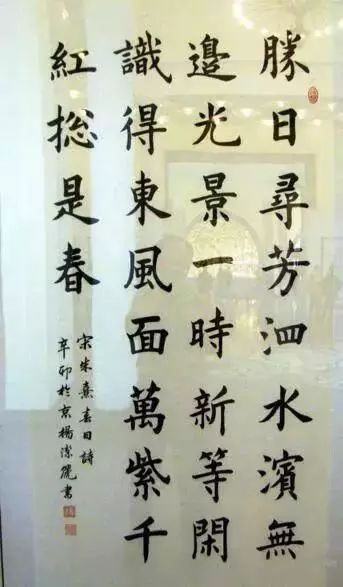 勝日尋芳泗水濱無
邊光景一時新等閑
識得東風面萬紫千
紅捴是春
宋朱熹春日詩
辛卯於京楊潔麗書